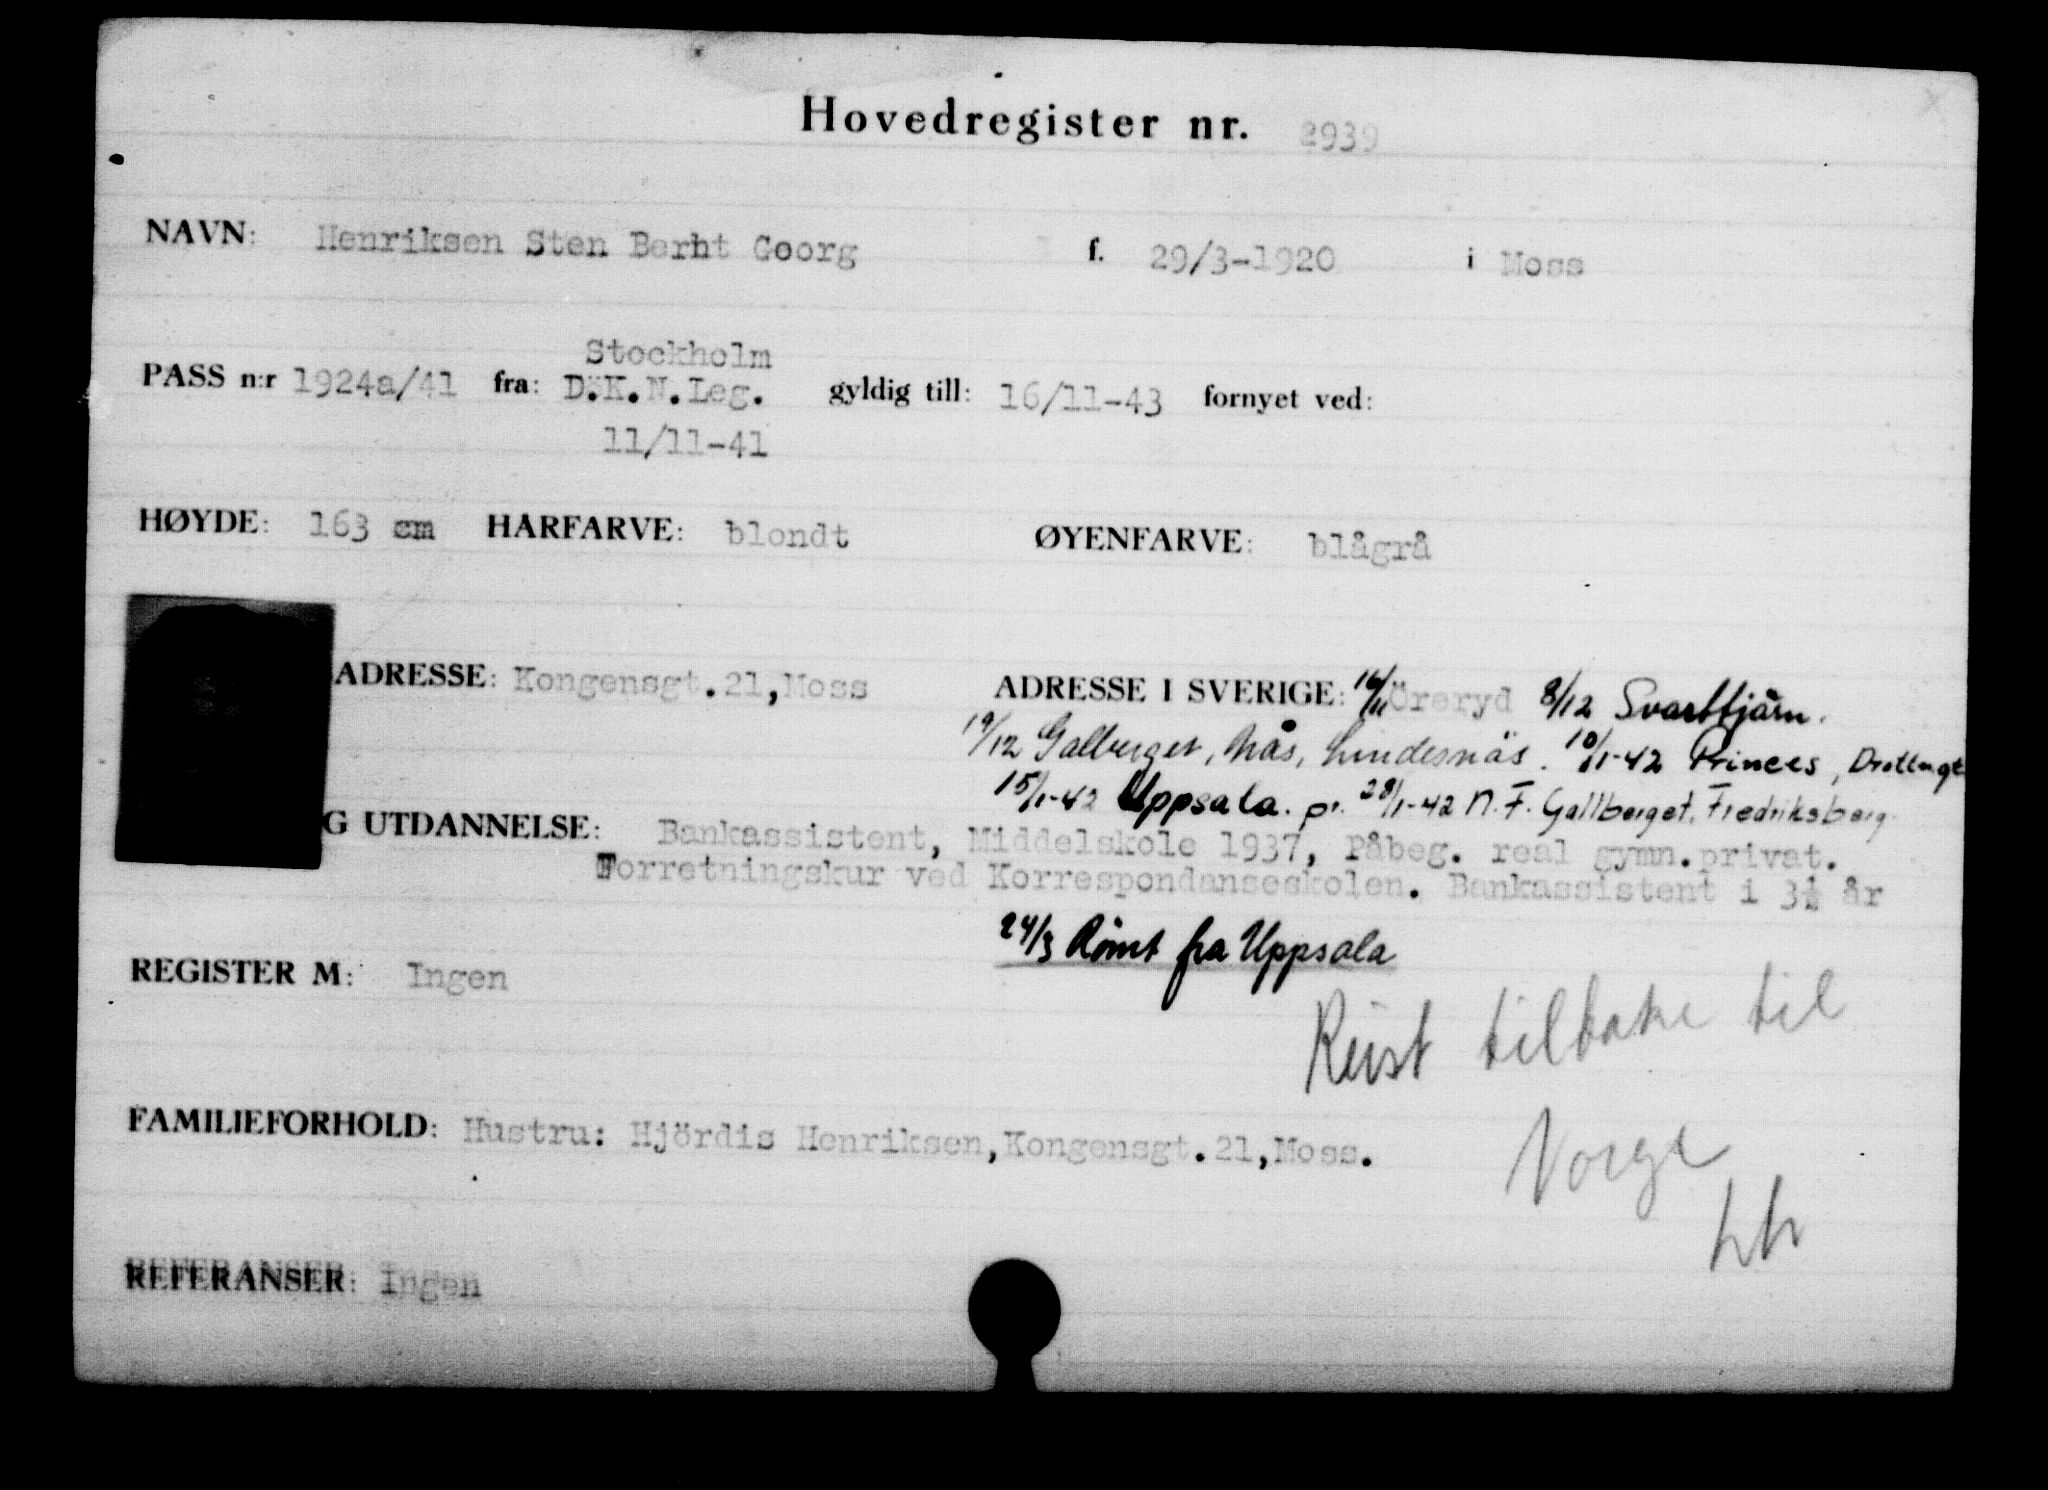 Hovedregister nr. 2939
NAVN: Henriksen Sten Bernt Georg f. 29/3-1920 i Moss
Stockholm
PASS n:r 1924a/41 fra: D.K.N.Leg. gyldig till: 16/11-43 fornyet ved:
11/11-41
HØYDE: 163 cm HÅRFARVE: blondt ØYENFARVE: blågrå
ADRESSE: Kongensgt.21,Moss ADRESSE I SVERIGE: 16/11 Öreryd 8/12 Svarttjärn.
19/12 Gallberget, Nås, Lindesnäs. 10/1-42 Princes, Drottngt
15/1-42 Uppsala. pr. 28/1-42 N.F. Gallberget, Fredriksberg.
G UTDANNELSE: Bankassistent, Middelskole 1937, Påbeg. real gymn.privat.
Forretningskur ved Korrespondanseskolen. Bankassistent i 3½ år
24/3 Rømt fra Uppsala
REGISTER M: Ingen
Reist tilbake til
FAMILIEFORHOLD: Hustru: Hjördis Henriksen,Kongensgt.21,Moss.
Norge
REFERANSER: Ingen